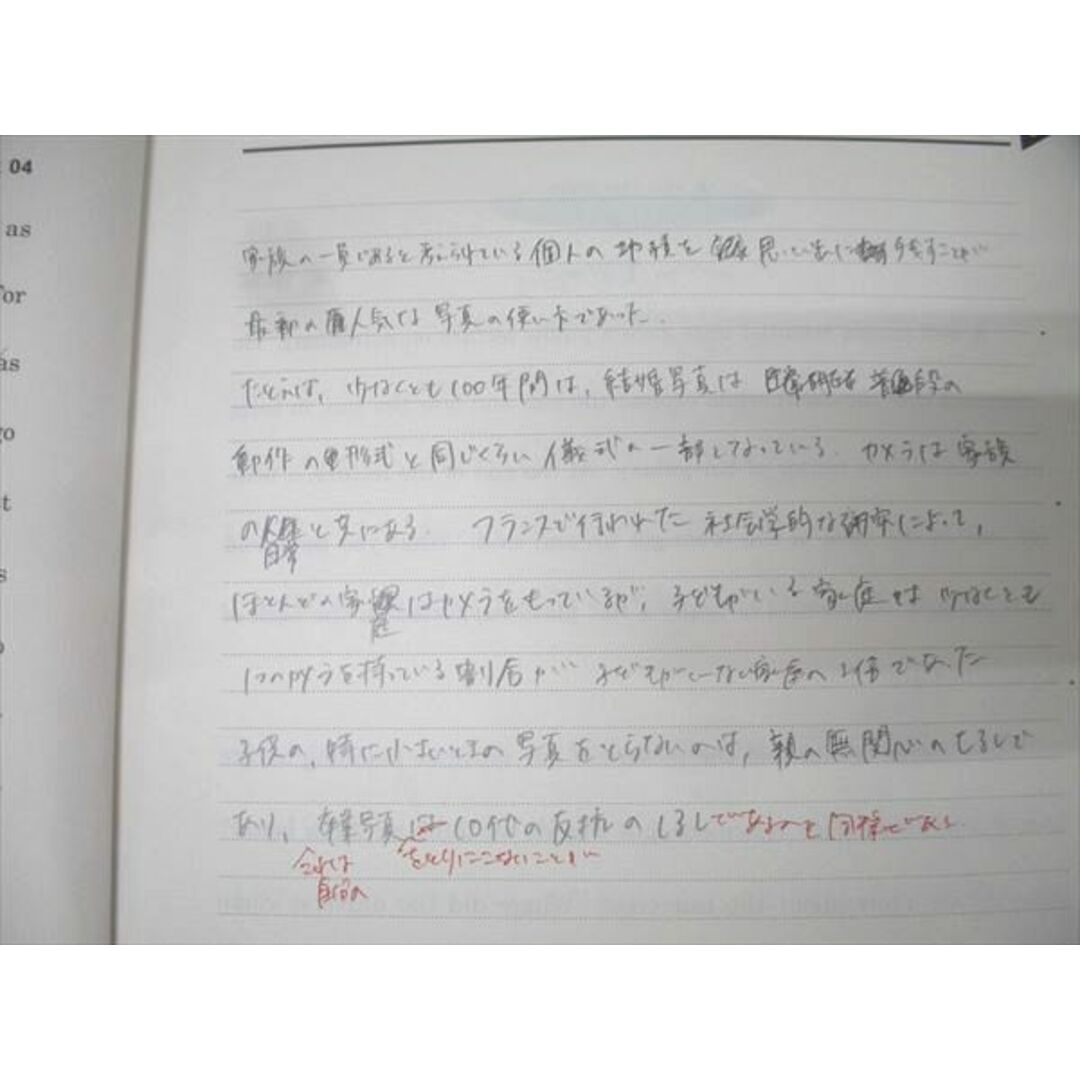 04
as
for
as
go
t
s
家族の一員であると考えられている個人の功績を 思い出に残すことが
最初の 人気な写真の使い方であった.
たとえば, 少なくとも100年間は, 結婚写真は 普段の
動作の 形式と同じくらい儀式の一部となっている. カメラは家族
の と共にある. フランスで行われた社会学的な研究によって,
日常
ほとんどの家 はカメラをもっているが, 子どもがいる家庭は少なくとも
庭
1つのカメラを持っている割合が 子どもがいない家庭の2倍であった
子供の, 特に小さいときの写真をとらないのは, 親の無関心のしるしで
あり, 卒業写真は10代の反抗のしるしであるのと同様である.
をとりにこないことが
自分の